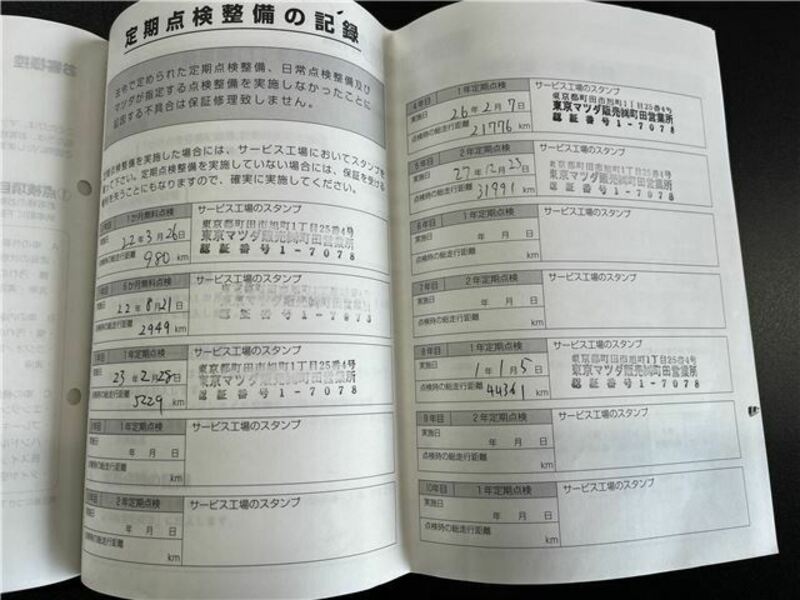 定期点検整備の記録
法令で定められた定期点検整備、日常点検整備及び
マツダが指定する点検整備を実施しなかったことに
起因する不具合は保証修理致しません。
点検整備を実施した場合には、サービス工場においてスタンプを
下さい。定期点検整備を実施していない場合には、保証を受ける
を失うことにもなりますので、確実に実施してください。
1か月無料点検 サービス工場のスタンプ
22年3月26日
点検時の総走行距離
980 km
東京都町田市旭町1丁目25番4号
東京マツダ販売㈱町田営業所
認証番号1-7078
6か月無料点検 サービス工場のスタンプ
22年8月21日
点検時の総走行距離
2949 km
東京都町田市旭町1丁目25番4号
東京マツダ販売㈱町田営業所
認証番号1-7078
1年定期点検 サービス工場のスタンプ
23年2月28日
点検時の総走行距離
5229 km
東京都町田市旭町1丁目25番4号
東京マツダ販売㈱町田営業所
認証番号1-7078
1年定期点検 サービス工場のスタンプ
年 月 日
点検時の総走行距離
km
2年定期点検 サービス工場のスタンプ
年 月 日
点検時の総走行距離
km
4年目 1年定期点検 サービス工場のスタンプ
実施日 26年2月7日
点検時の総走行距離
21776 km
東京都町田市旭町1丁目25番4号
東京マツダ販売㈱町田営業所
認証番号1-7078
5年目 2年定期点検 サービス工場のスタンプ
実施日 27年12月23日
点検時の総走行距離
31991 km
東京都町田市旭町1丁目25番4号
東京マツダ販売㈱町田営業所
認証番号1-7078
6年目 1年定期点検 サービス工場のスタンプ
実施日 年 月 日
点検時の総走行距離
km
2年定期点検 サービス工場のスタンプ
実施日 年 月 日
点検時の総走行距離
km
8年目 1年定期点検 サービス工場のスタンプ
実施日 1年1月5日
点検時の総走行距離
44361 km
東京都町田市旭町1丁目25番4号
東京マツダ販売㈱町田営業所
認証番号1-7078
9年目 2年定期点検 サービス工場のスタンプ
実施日 年 月 日
点検時の総走行距離
km
10年目 1年定期点検 サービス工場のスタンプ
実施日 年 月 日
点検時の総走行距離
km